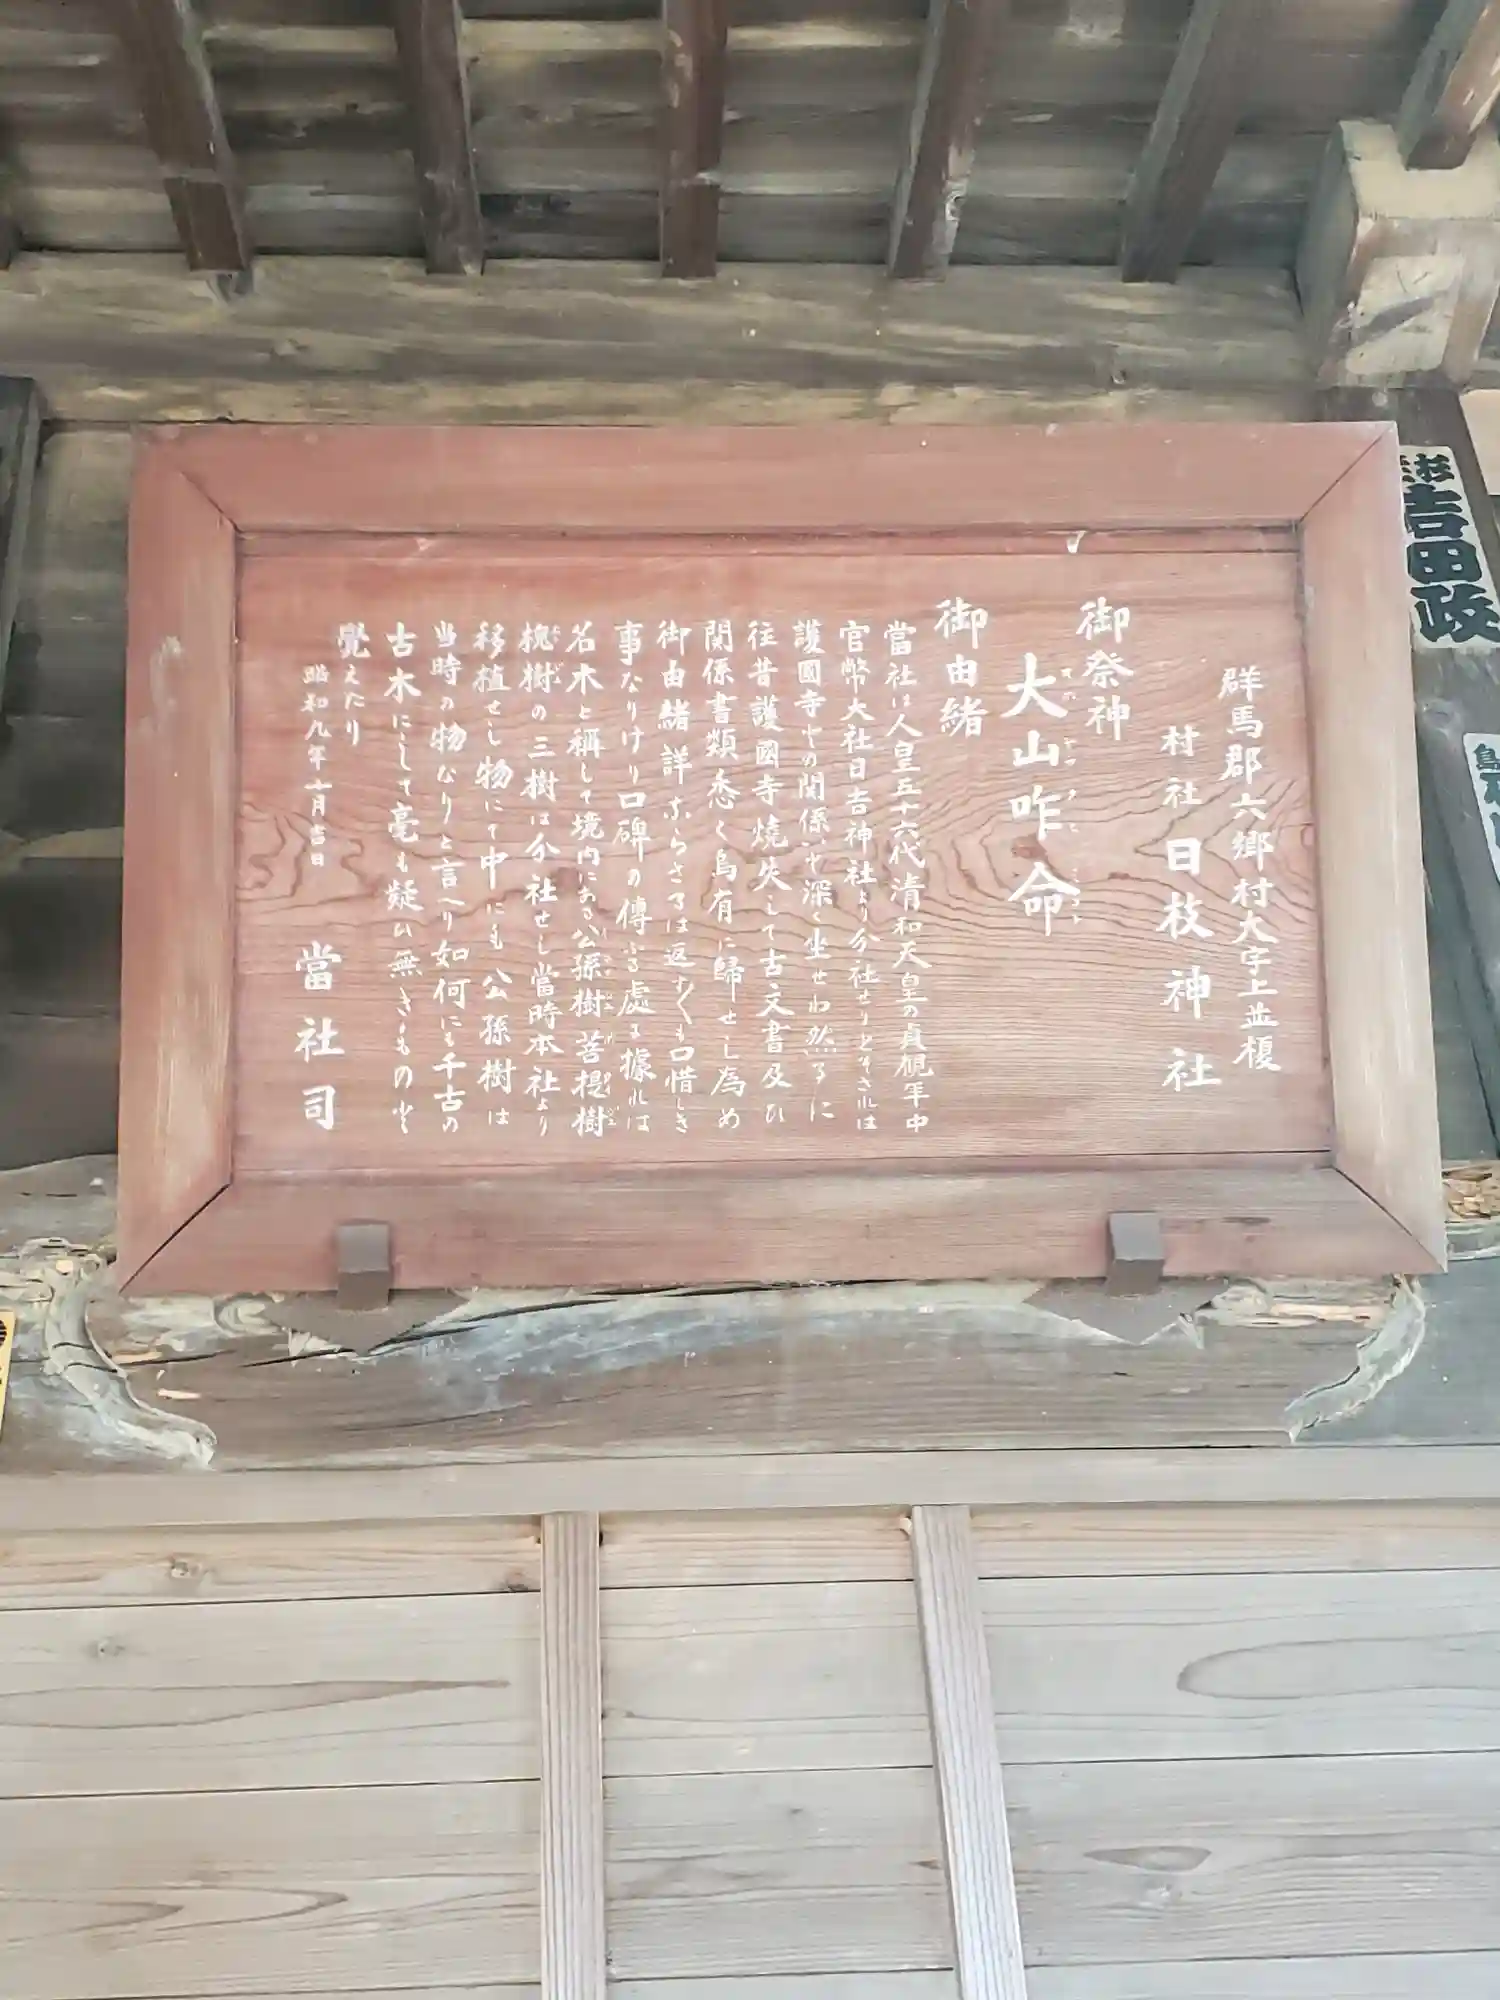 群馬郡六郷村大字上並榎
村社 日枝神社
御祭神
大山咋命
御由緒
當社は人皇五十六代清和天皇の貞観年中
官幣大社日吉神社より分社せりとそされは
護國寺との関係いと深く坐せり然るに
往昔護國寺燒失して古文書及ひ
関係書類悉く烏有に歸せし為め
御由緒詳ならさるは返すくも口惜しき
事なりけり口碑の傳ふる處に據れは
名木と稱して境内にある公孫樹菩提樹
槐樹の三樹は分社せし當時本社より
移植せし物にて中にも公孫樹は
当時の物なりと言へり如何にも千古の
古木にして毫も疑ひ無きものと
覺えたり
昭和九年十月吉日
當社司
吉田政